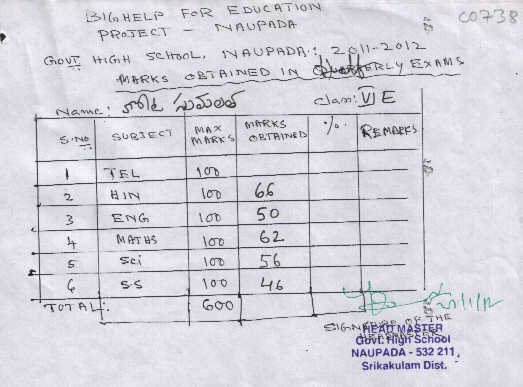 C00738
BIGHELP FOR EDUCATION
PROJECT - NAUPADA
GOVT HIGH SCHOOL, NAUPADA: 2011-2012
MARKS OBTAINED IN QUARTERLY EXAMS
Name: సుమలత class: VI E
S.NO SUBJECT MAX MARKS MARKS OBTAINED % REMARKS
1 TEL 100
2 HIN 100 66
3 ENG 100 50
4 MATHS 100 62
5 Sci 100 56
6 S.S 100 46
TOTAL: 600
SIGNATURE OF THE
HEADMASTER
HEAD MASTER
Govt. High School
NAUPADA - 532 211,
Srikakulam Dist.